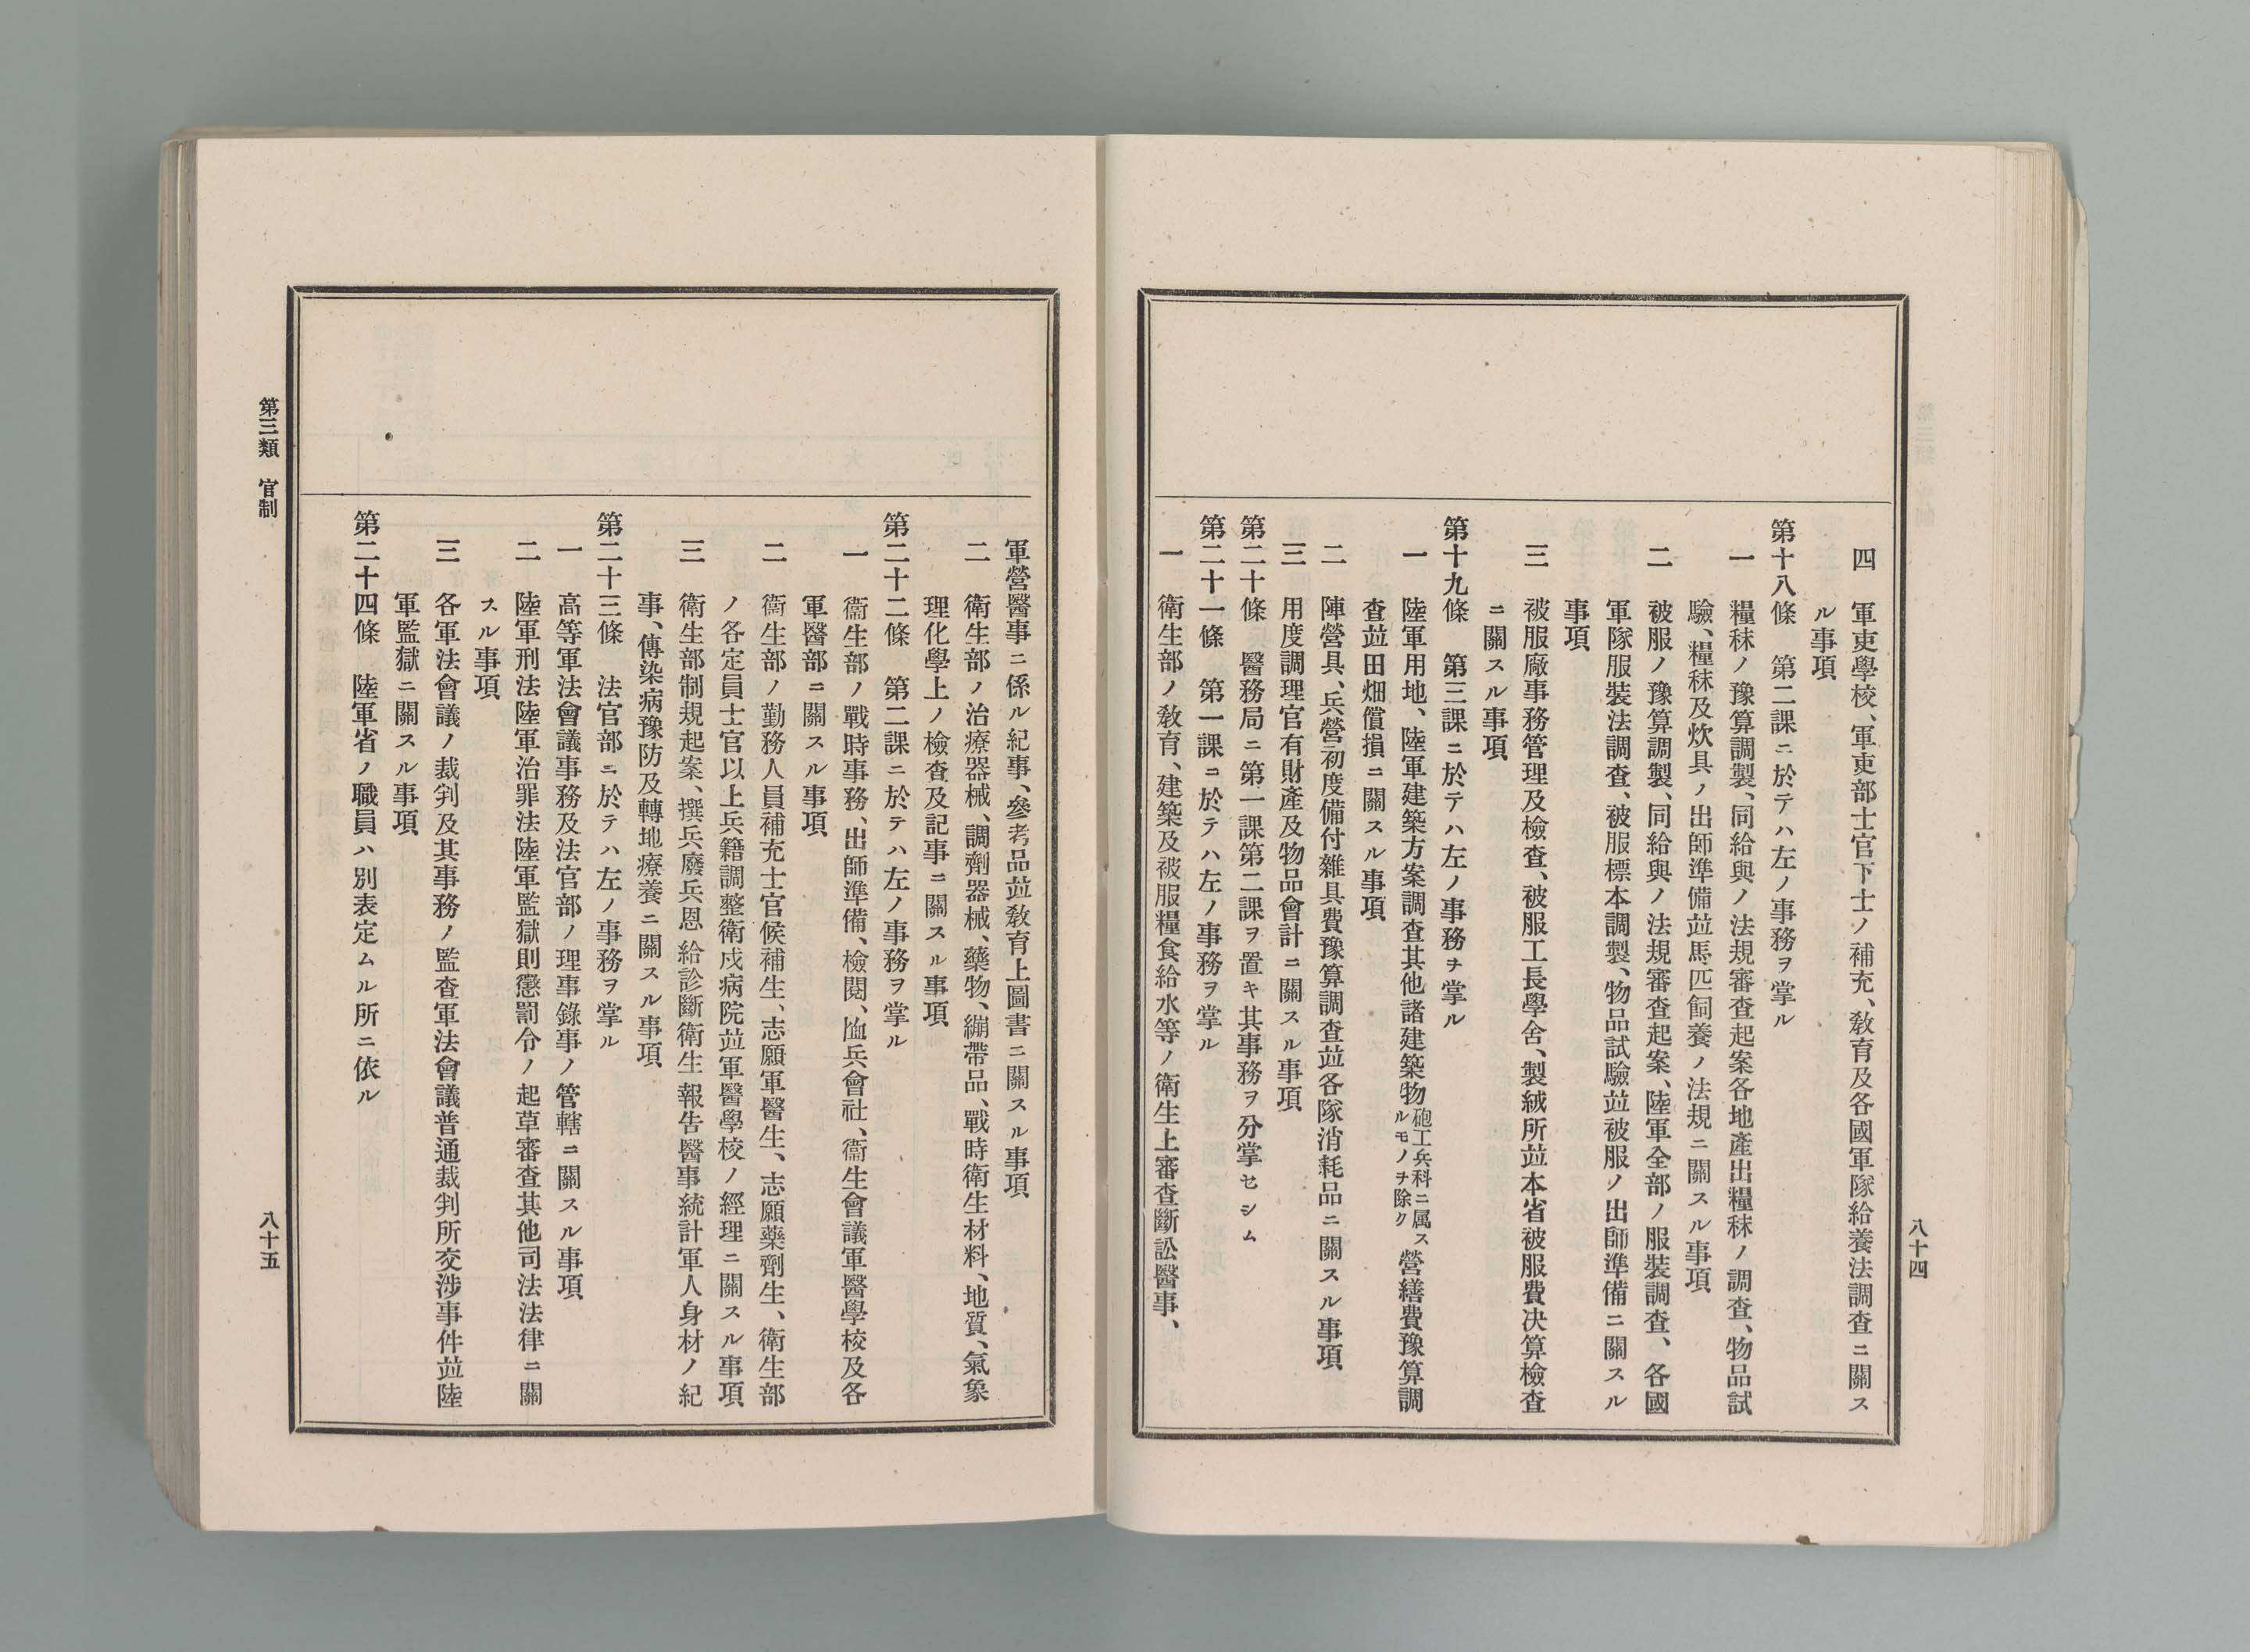 四　軍吏學校、軍吏部士官下士ノ補充、敎育及各國軍隊給養法調査ニ關ス
ル事項
第十八條　第二課ニ於テハ左ノ事務ヲ掌ル
一　糧秣ノ豫算調製、同給與ノ法規審査起案各地產出糧秣ノ調査、物品試
驗、糧秣及炊具ノ出師準備竝馬匹飼養ノ法規ニ關スル事項
二　被服ノ豫算調製、同給與ノ法規審査起案、陸軍全部ノ服裝調査、各國
軍隊服裝法調査、被服標本調製、物品試驗竝被服ノ出師準備ニ關スル
事項
三　被服廠事務管理及檢査、被服工長學舍、製絨所竝本省被服費决算檢査
ニ關スル事項
第十九條　第三課ニ於テハ左ノ事務ヲ掌ル
一　陸軍用地、陸軍建築方案調査其他諸建築物砲工兵科ニ属スルモノヲ除ク營繕費豫算調
査竝田畑償損ニ關スル事項
二　陣營具、兵營初度備付雜具費豫算調査竝各隊消耗品ニ關スル事項
三　用度調理官有財產及物品會計ニ關スル事項
第二十條　醫務局ニ第一課第二課ヲ置キ其事務ヲ分掌セシム
第二十一條　第一課ニ於テハ左ノ事務ヲ掌ル
一　衛生部ノ敎育、建築及被服糧食給水等ノ衛生上審査斷訟醫事、
八十四
軍營醫事ニ係ル紀事、參考品竝敎育上圖書ニ關スル事項
二　衛生部ノ治療器械、調劑器械、藥物、繃帶品、戰時衛生材料、地質、氣象
理化學上ノ檢査及記事ニ關スル事項
第二十二條　第二課ニ於テハ左ノ事務ヲ掌ル
一　衞生部ノ戰時事務、出師準備、檢閱、恤兵會社、衞生會議軍醫學校及各
軍醫部ニ關スル事項
二　衞生部ノ勤務人員補充士官候補生、志願軍醫生、志願藥劑生、衛生部
ノ各定員士官以上兵籍調整衛戍病院竝軍醫學校ノ經理ニ關スル事項
三　衛生部制規起案、撰兵廢兵恩給診斷衛生報告醫事統計軍人身材ノ紀
事、傳染病豫防及轉地療養ニ關スル事項
第二十三條　法官部ニ於テハ左ノ事務ヲ掌ル
一　高等軍法會議事務及法官部ノ理事錄事ノ管轄ニ關スル事項
二　陸軍刑法陸軍治罪法陸軍監獄則懲罰令ノ起草審査其他司法法律ニ關
スル事項
三　各軍法會議ノ裁判及其事務ノ監査軍法會議普通裁判所交涉事件竝陸
軍監獄ニ關スル事項
第二十四條　陸軍省ノ職員ハ別表定ムル所ニ依ル
第三類　官制
八十五